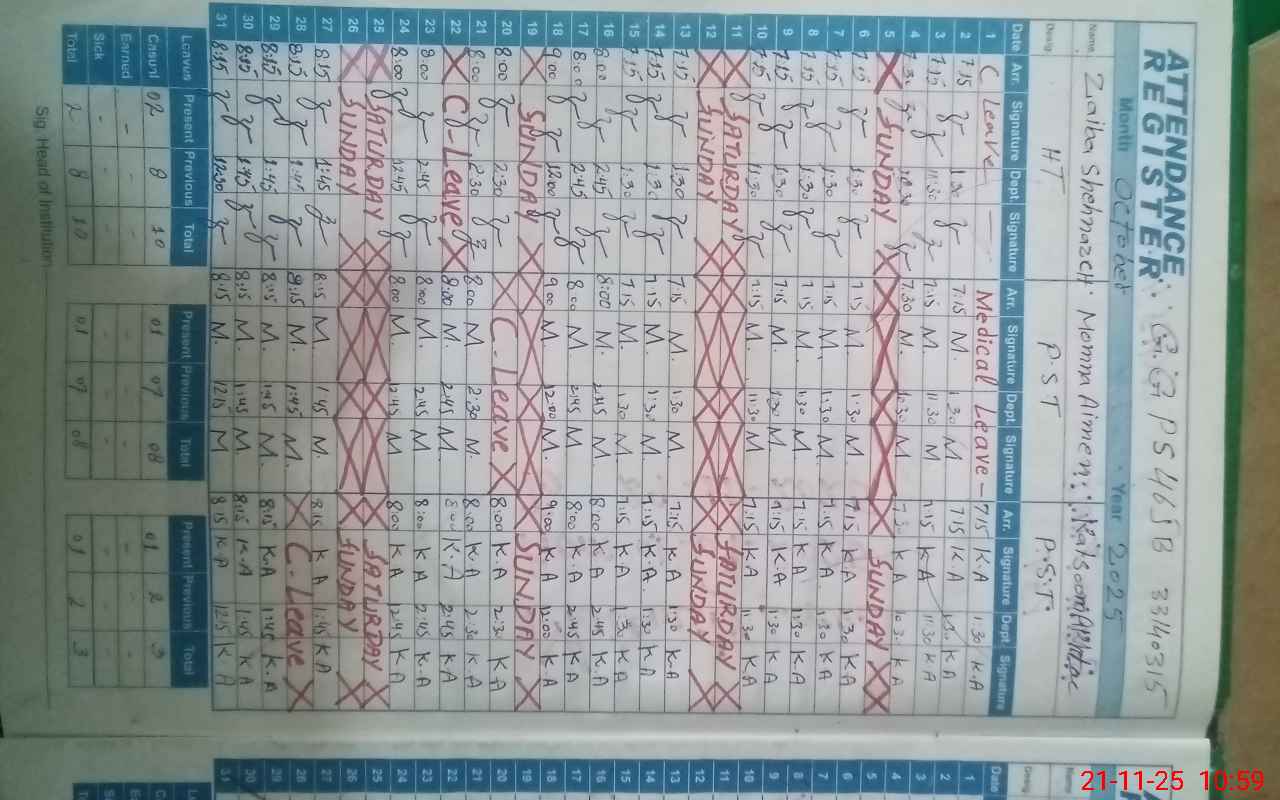 ATTENDANCE REGISTER: G.G PS 465 B 33140315
Month October Year 2025
Name. Zialba Shehnazch. Momna Aimen: Kalsoom Ahmtiac
Desig: HT P.S.T P.S.T
Date Arr. Signature Dept. Signature Arr. Signature Dept. Signature Arr. Signature Dept Signature
1 C Leave — Medical Leave - 7:15 K.A 1:30 K.A
2 7:15 1:30 7:15 M. 1:30 M 7:15 K.A 1:30 K.A
3 7:15 11:30 7:15 M 11:30 M 7:15 K.A 11:30 K.A
4 7:30 10:30 7:30 M. 10:30 M 7:30 K A 10:30 K A
5 SUNDAY SUNDAY
6 7:15 1:30 7:15 M 1:30 M. 7:15 K A 1:30 K.A
7 7:15 1:30 7:15 M. 1:30 M. 7:15 K A 1:30 K.A
8 7:15 1:30 7:15 M 1:30 M 7:15 K.A 1:30 K.A
9 7:15 1:30 7:15 M 1:30 M. 7:15 K.A 1:30 K.A
10 7:15 11:30 7:15 M. 11:30 M. 7:15 K.A 11:30 K.A
11 SATURDAY SATURDAY
12 SUNDAY SUNDAY
13 7:15 1:30 7:15 M. 1:30 M. 7:15 K.A 1:30 K.A
14 7:15 1:30 7:15 M. 1:30 M. 7:15 K.A 1:30 K.A
15 7:15 1:30 7:15 M. 1:30 M. 7:15 K.A 1:30 K.A
16 8:00 2:45 8:00 M. 2:45 M. 8:00 K.A 2:45 K.A
17 8:00 2:45 8:00 M. 2:45 M. 8:00 K.A 2:45 K.A
18 9:00 12:00 9:00 M. 12:00 M. 9:00 K A 12:00 K.A
19 SUNDAY SUNDAY
20 8:00 2:30 C-Leave 8:00 K.A 2:30 K.A
21 8:00 2:30 8:00 M. 2:30 M. 8:00 K.A 2:30 K.A
22 C-Leave 8:00 M. 2:45 M. 8:00 K.A 2:45 K.A
23 8:00 2:45 8:00 M. 2:45 M. 8:00 K A 2:45 K.A
24 8:00 12:45 8:00 M. 12:45 M. 8:00 K A 12:45 K A
25 SATURDAY SATURDAY
26 SUNDAY SUNDAY
27 8:15 1:45 8:15 M. 1:45 M. 8:15 K A 1:45 K A
28 8:15 1:45 8:15 M. 1:45 M. C-Leave
29 8:15 1:45 8:15 M. 1:45 M. 8:15 K.A 1:45 K.A
30 8:15 1:45 8:15 M. 1:45 M. 8:15 K.A 1:45 K.A
31 8:15 12:30 8:15 M. 12:15 M 8:15 K A 12:15 K.A
Leavus Present Previous Total Present Previous Total Present Previous Total
Casunl 02 8 10 01 07 08 01 2 3
Earned - - - - - -
Sick - - - - - -
Total 2 8 10 01 07 08 01 2 3
Sig. Head of Institution
Date 1 2 3 4 5 6 7 8 9 10 11 12 13 14 15 16 17 18 19 20 21 22 23 24 25 26 27 28 29 30 31
21-11-25 10:59